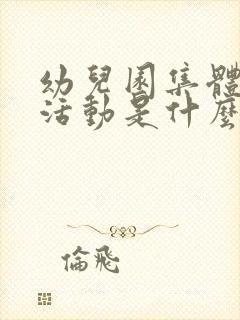 幼兒園集體
活動是什麼
倫飛